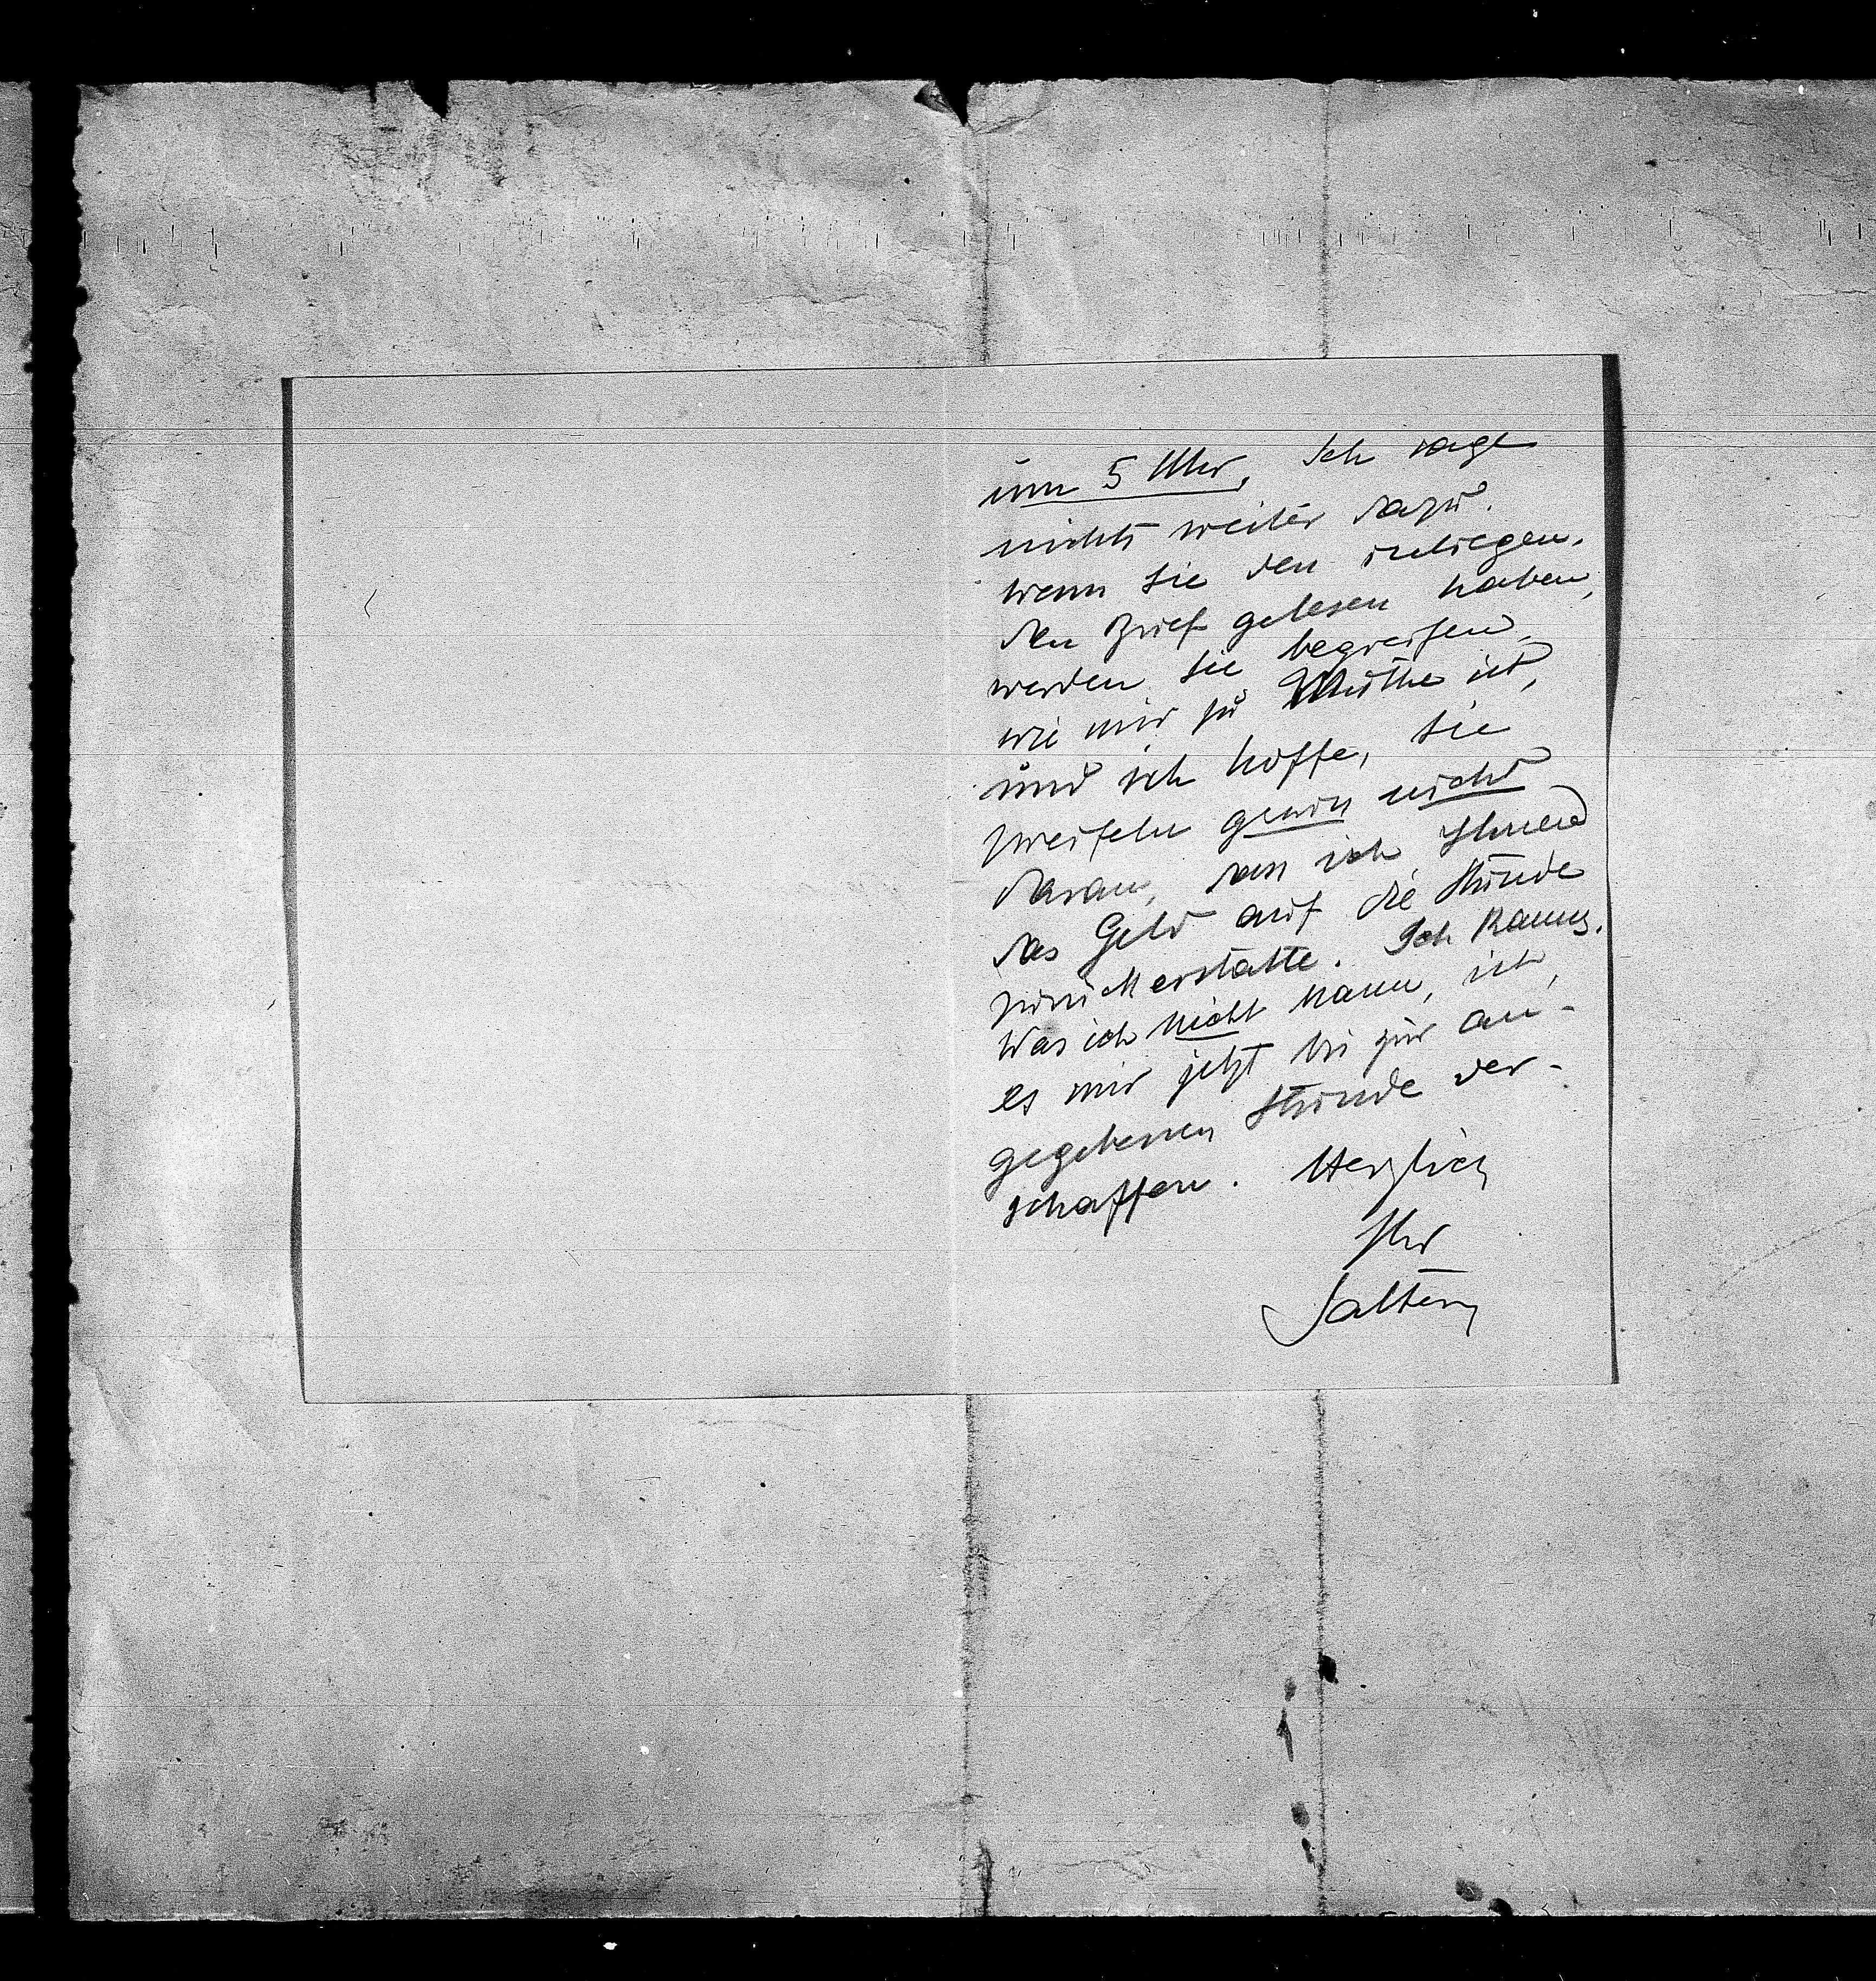 um 5 Uhr. Ich sage
nichts weiter dazu.
Wenn Sie den inliegen-
den Brief gelesen haben,
werden Sie begreifen,
wie mir zu Muthe ist,
und ich hoffe, Sie
zweifeln gewiss nicht
daran, dass ich Ihnen
das Geld auf die Stunde
zurückerstatte. Ich kanns.
Was ich nicht kann, ist,
es mir jetzt bis zur an-
gegebenen Stunde ver-
schaffen. Herzlich
Ihr
Salten